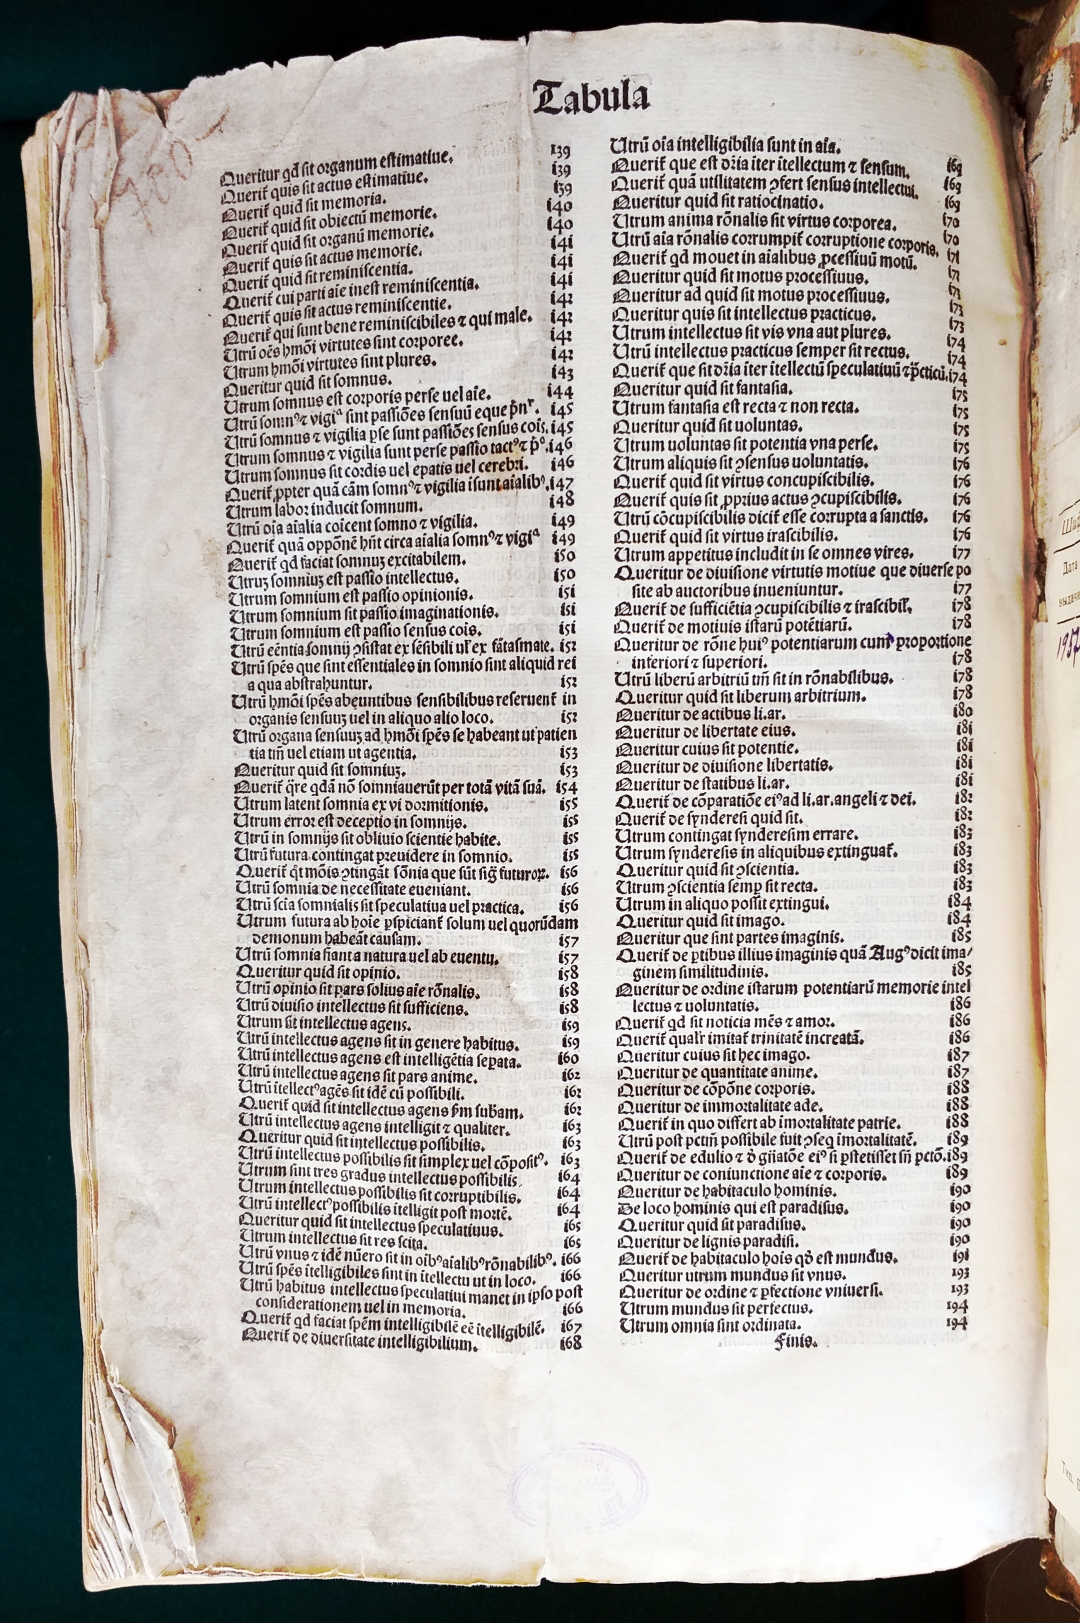 Tabula
Queritur qd sit organum estimatiue. 139
Querit᷑ quis sit actus estimatiue. 139
Querit᷑ quid sit memoria. 139
Querit᷑ quid sit obiectũ memorie. 140
Querit᷑ quid sit organũ memorie. 140
Querit᷑ quis sit actus memorie. 141
Querit᷑ quid sit reminiscentia. 141
Querit᷑ cui parti aĩe inest reminiscentia. 141
Querit᷑ quis sit actus reminiscentie. 142
Querit᷑ qui sunt bene reminiscibiles ⁊ qui male. 142
Utrũ oẽs hmõi virtutes sint corporee. 142
Utrum hmõi virtutes sint plures. 142
Queritur quid sit somnus. 143
Utrum somnus est corporis perse uel aĩe. 144
Utrũ somnꝰ ⁊ vigiᵃ sint passiões sensuũ eque 145
Utrũ somnus ⁊ vigilia pse sunt passiões sensus cois. 145
Utrum somnus ⁊ vigilia sunt perse passio tactꝰ ⁊ 146
Utrum somnus sit cordis uel epatis uel cerebri. 146
Querit᷑ ꝓpter quã cãm somnꝰ ⁊ vigilia ĩsunt aĩalibꝰ. 147
Utrum labor inducit somnum. 148
Utrũ oĩa aĩalia coicent somno ⁊ vigilia. 149
Querit᷑ quã oppõnẽ hñt circa aĩalia somnꝰ ⁊ vigiᵃ 149
Querit᷑ qd faciat somnuʒ excitabilem. 150
Utruʒ somniuʒ est passio intellectus. 150
Utrum somnium est passio opinionis. 151
Utrum somnium sit passio imaginationis. 151
Utrum somnium est passio sensus cois. 151
Utrũ eẽntia somnij ꝯsistat ex sẽsibili ul᷑ ex fãtasmate. 152
Utrũ spẽs que sint essentiales in somnio sint aliquid rei
a qua abstrahuntur. 152
Utrũ hmõi spẽs abeuntibus sensibilibus reseruent᷑ in
organis sensuuʒ uel in aliquo alio loco. 152
Utrũ organa sensuuʒ ad hmõi spẽs se habeant ut patien
tia tm̃ uel etiam ut agentia. 153
Queritur quid sit somniuʒ. 153
Querit᷑ q̃re qdã nõ somniauerũt per totã vitã suã. 154
Utrum latent somnia ex vi dormitionis. 155
Utrum error est deceptio in somnijs. 155
Utrũ in somnijs sit obliuio scientie habite. 155
Utrũ futura contingat preuidere in somnio. 155
Querit᷑ q̃t mõis ꝯtingãt sõnia que sũt sig᷑ futuroꝝ. 156
Utrũ somnia de necessitate eueniant. 156
Utrũ scĩa somnialis sit speculatiua uel practica. 156
Utrum futura ab hoĩe ꝑspiciant᷑ solum uel quorũdam
demonum habeãt causam. 157
Utrũ somnia fiant a natura uel ab euentu. 157
Queritur quid sit opinio. 158
Utrũ opinio sit pars solius aĩe rõnalis. 158
Utrũ diuisio intellectus sit sufficiens. 158
Utrum sit intellectus agens. 159
Utrũ intellectus agens sit in genere habitus. 159
Utrũ intellectus agens est intelligẽtia seꝑata. 160
Utrũ intellectus agens sit pars anime. 162
Utrũ ĩtellectꝰ agẽs sit idẽ cũ possibili. 162
Querit᷑ quid sit intellectus agens ẜm subãm. 162
Utrũ intellectus agens intelligit ⁊ qualiter. 163
Queritur quid sit intellectus possibilis. 163
Utrũ intellectus possibilis sit simplex uel cõpositꝰ. 163
Utrum sint tres gradus intellectus possibilis. 164
Utrum intellectus possibilis sit corruptibilis. 164
Utrũ intellectꝰ possibilis ĩtelligit post mortẽ. 164
Queritur quid sit intellectus speculatiuus. 165
Utrum intellectus sit res scita. 165
Utrũ vnus ⁊ idẽ nũero sit in oĩbꝰ aĩalibꝰ rõnabilibꝰ. 166
Utrũ spẽs ĩtelligibiles sint in ĩtellectu ut in loco. 166
Utrũ habitus intellectus speculatiui manet in ipso post
considerationem uel in memoria. 166
Querit᷑ qd faciat spẽm intelligibilẽ eẽ ĩtelligibilẽ. 167
Querit᷑ de diuersitate intelligibilium. 168
Utrũ oĩa intelligibilia sunt in aĩa. 169
Querit᷑ que est dr̃ia ĩter ĩtellectum ⁊ sensum. 169
Querit᷑ quã utilitatem ꝯfert sensus intellectui. 169
Queritur quid sit ratiocinatio. 170
Utrum anima rõnalis sit virtus corporea. 170
Utrũ aĩa rõnalis corrumpit᷑ corruptione corporis. 171
Querit᷑ qd mouet in aĩalibus ꝓcessiuũ motũ. 171
Queritur quid sit motus processiuus. 173
Queritur ad quid sit motus processiuus. 173
Queritur quis sit intellectus practicus. 173
Utrum intellectus sit vis vna aut plures. 174
Utrũ intellectus practicus semper sit rectus. 174
Querit᷑ que sit dr̃ia ĩter ĩtellectũ speculatiuũ ⁊ p̃cticũ. 174
Queritur quid sit fantasia. 175
Utrum fantasia est recta ⁊ non recta. 175
Queritur quid sit uoluntas. 175
Utrum uoluntas sit potentia vna perse. 175
Utrum aliquis sit ꝯsensus uoluntatis. 176
Querit᷑ quid sit virtus concupiscibilis. 176
Querit᷑ quis sit ꝓprius actus ꝯcupiscibilis. 176
Utrũ cõcupiscibilis dicit᷑ esse corrupta a sanctis. 176
Querit᷑ quid sit virtus irascibilis. 176
Utrum appetitus includit in se omnes vires. 177
Queritur de diuisione virtutis motiue que diuerse po
site ab auctoribus inueniuntur. 177
Querit᷑ de sufficiẽtia ꝯcupiscibilis ⁊ irascibil᷑. 178
Querit᷑ de motiuis istarũ potẽtiarũ. 178
Queritur de rõne huiꝰ potentiarum cum proportione
inferiori ⁊ superiori. 178
Utrũ liberũ arbitriũ tm̃ sit in rõnabilibus. 178
Queritur quid sit liberum arbitrium. 178
Queritur de actibus li.ar. 180
Queritur de libertate eius. 181
Queritur cuius sit potentie. 181
Queritur de diuisione libertatis. 181
Queritur de statibus li.ar. 181
Querit᷑ de cõparatiõe eiꝰ ad li.ar.angeli ⁊ dei. 182
Querit᷑ de synderesi quid sit. 182
Utrum contingat synderesim errare. 183
Utrum synderesis in aliquibus extinguat᷑. 183
Queritur quid sit ꝯscientia. 183
Utrum ꝯscientia semꝑ sit recta. 183
Utrum in aliquo possit extingui. 184
Queritur quid sit imago. 184
Queritur que sint partes imaginis. 185
Querit᷑ de ꝑtibus illius imaginis quã Augꝰ dicit ima/
ginem similitudinis. 185
Queritur de ordine istarum potentiarũ memorie intel
lectus ⁊ uoluntatis. 186
Querit᷑ qd sit noticia mẽs ⁊ amor. 186
Querit᷑ qualr᷑ imitat᷑ trinitatẽ increatã. 186
Queritur cuius sit hec imago. 187
Queritur de quantitate anime. 187
Queritur de cõpõne corporis. 188
Queritur de immortalitate ade. 188
Querit᷑ in quo differt ab imortalitate patrie. 188
Utrũ post pctm̃ possibile fuit ꝯseq imortalitatẽ. 189
Querit᷑ de edulio ⁊ đ gñatõe eiꝰ si ꝑstetisset sñ pctõ. 189
Queritur de coniunctione aĩe ⁊ corporis. 189
Queritur de habitaculo hominis. 190
De loco hominis qui est paradisus. 190
Queritur quid sit paradisus. 190
Queritur de lignis paradisi. 190
Querit᷑ de habitaculo hois qđ est mundus. 191
Queritur utrum mundus sit vnus. 193
Queritur de ordine ⁊ ꝑfectione vniuersi. 193
Utrum mundus sit perfectus. 194
Utrum omnia sint ordinata. 194
Finis.
1957